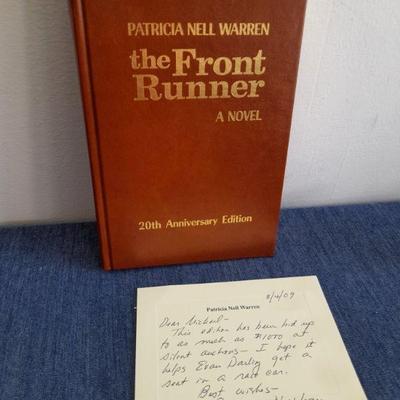 PATRICIA NELL WARREN
the Front
Runner
A NOVEL
20th Anniversary Edition
Patricia Nell Warren
8/4/09
Dear Michael-
This edition has been bid up
to as much as $1000 at
silent auctions- I hope it
helps Evan Darling get a
seat in a race car.
Best wishes-